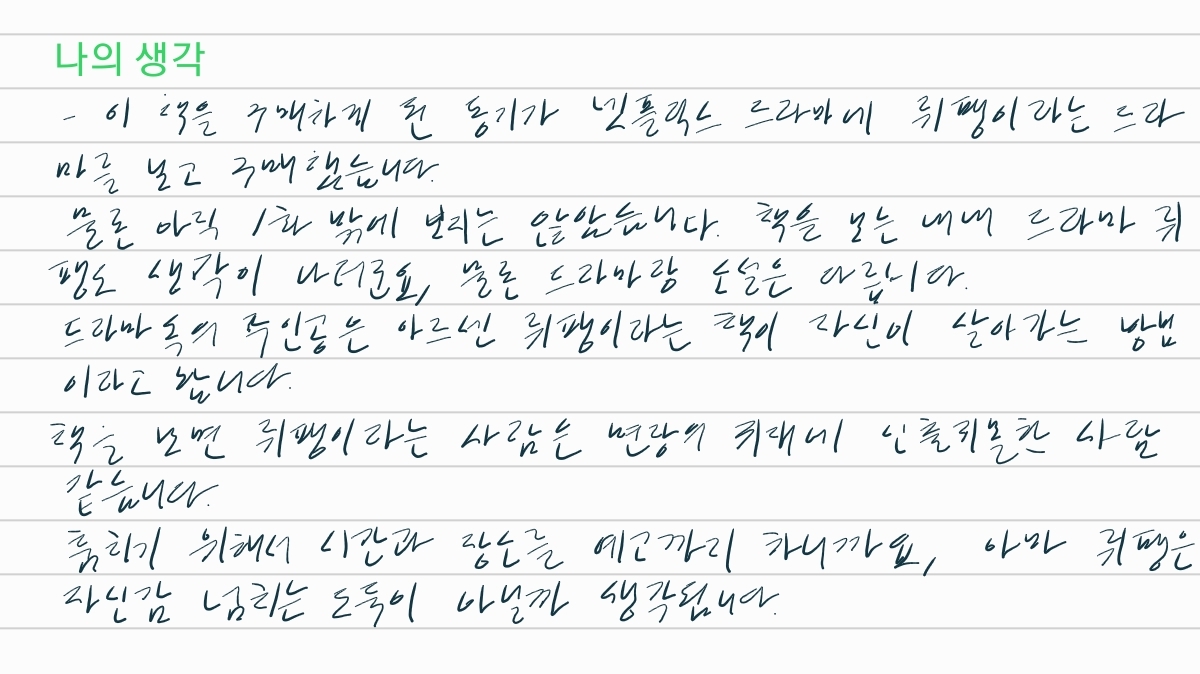 나의 생각
- 이 책을 구매하게 된 동기가 넷플릭스 드라마에 뤼팽이라는 드라
마를 보고 구매했습니다.
물론 아직 1화 밖에 보지는 않았습니다. 책을 보는 내내 드라마 뤼
팽도 생각이 나더군요, 물론 드라마랑 소설은 다릅니다.
드라마 속의 주인공은 아르센 뤼팽이라는 책이 자신이 살아가는 방법
이라고 합니다.
책을 보면 뤼팽이라는 사람은 변장의 귀재에 사람
같습니다.
훔치기 위해서 시간과 장소를 예고까지 하니까요, 아마 뤼팽은
자신감 넘치는 도둑이 아닐까 생각됩니다.